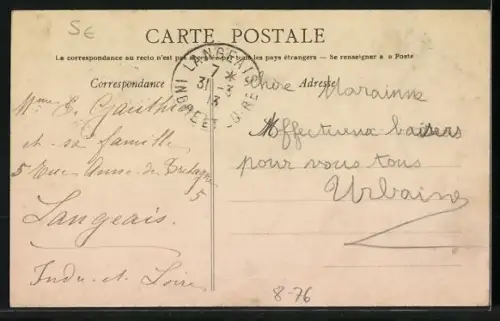 5€
CARTE POSTALE
La correspondance au recto n'est pas acceptée par tous les pays étrangers — Se renseigner à la Poste
Correspondance
Adresse
LANGEAIS
7 *
31 - 3
13
INDRE-ET-LOIRE
Mme E. Gauthier
et sa famille
5 Rue Anne de Bretagne
5
Langeais.
Indre-et-Loire
Chère Marainne
Affectueux baisers
pour vous tous
Urbain
8-76